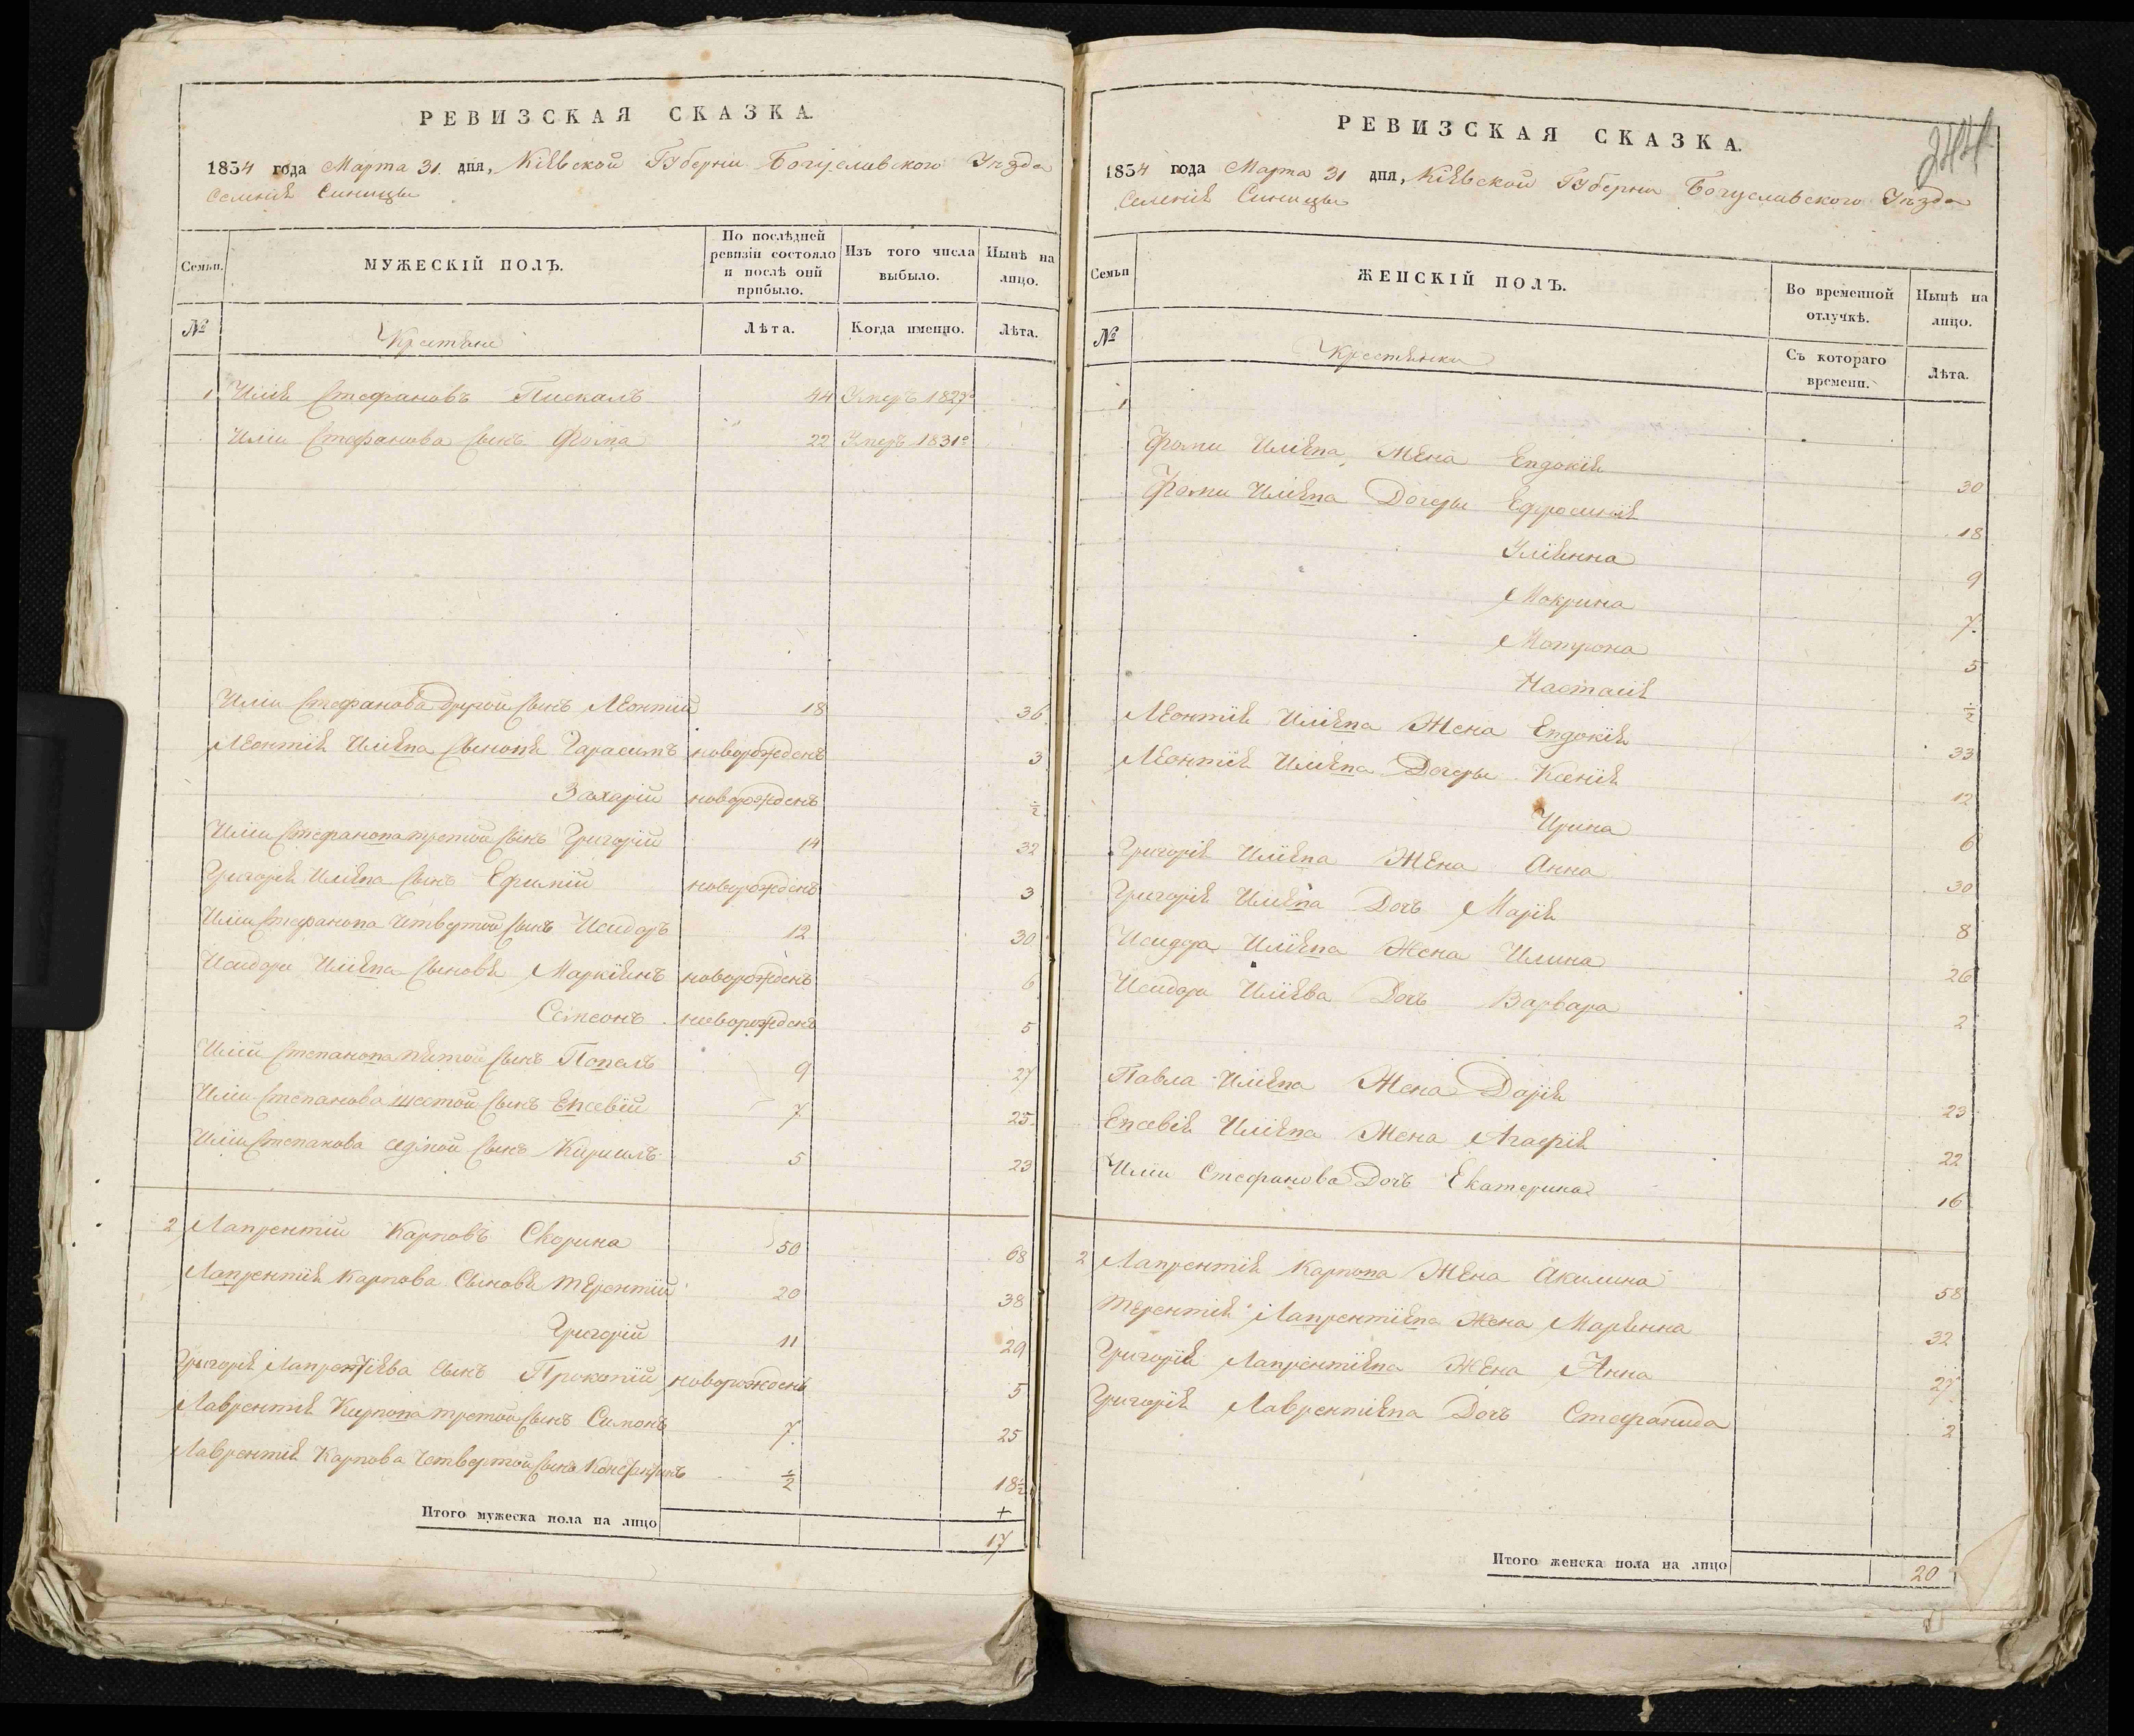 РЕВИЗСКАЯ СКАЗКА.
1834 года Марта 31 дня, Кіевской Губерніи Богуславского Уезда
Селенія Синицы
Семьи. МУЖЕСКІЙ ПОЛЪ. По послѣдней ревизіи состояло и послѣ оной прибыло. Изъ того числа выбыло. Нынѣ на лицо.
№ Крестяне Лѣта. Когда именно. Лѣта.
1 Илія Стефановъ Пискалъ 44 Умеръ 1827о
Иліи Стефанова сынъ Фома 22 Умеръ 1831о
Иліи Стефанова другой сынъ Леонтій 18 36
Леонтія Иліева сыновя Гарасимъ новорожденъ 3
Захарій новорожденъ ½
Иліи Стефанова третой сынъ Григорій 14 32
Григорія Иліева сынъ Ефимій новорожденъ 3
Иліи Стефанова Четвертой сынъ Исидоръ 12 30
Исидора Иліева сыновя Маркіянъ новорожденъ 6
Семеонъ новорожденъ 5
Иліи Степанова пятой сынъ Павелъ 9 27
Иліи Степанова шестой сынъ Евсевій 7 25
Иліи Степанова седмой сынъ Кирилъ 5 23
2 Лаврентій Карповъ Скорина 50 68
Лаврентія Карпова Сыновя Терентій 20 38
Григорій 11 29
Григорія Лаврентіева сынъ Прокопій новорожденъ 5
Лаврентія Карпова третой сынъ Симонъ 7 25
Лаврентія Карпова Четвертой сынъ ½ 18½
Итого мужеска пола на лицо 17
РЕВИЗСКАЯ СКАЗКА.
244
1834 года Марта 31 дня, Кіевской Губерніи Богуславского Уезда
Селенія Синицы
Семьи ЖЕНСКІЙ ПОЛЪ. Во временной отлучкѣ. Нынѣ на лицо.
№ Крестянки Съ котораго времени. Лѣта.
1
Фоми Иліева Жена Евдокія 30
Фоми Иліева Дочери Ефросинія 18
Уліянна 9
Мокрина 7
Мотрона 5
Настасія ½
Леонтія Иліева Жена Евдокія 33
Леонтія Иліева Дочери Ксенія 12
Ирина 6
Григорія Иліева Жена Анна 30
Григорія Иліева Дочъ Марія 8
Исидора Иліева Жена Илина 26
Исидора Иліева Дочъ Варвара 2
Павла Иліева Жена Дарія 23
Евсевія Иліева Жена Агафія 22
Иліи Стефанова Дочъ Екатерина 16
2 Лаврентія Карпова Жена Акилина 58
Терентія Лаврентіева Жена Марянна 32
Григорія Лаврентіева Жена Анна 27
Григорія Лаврентіева Дочъ Стефанида 2
Итого женска пола на лицо 20